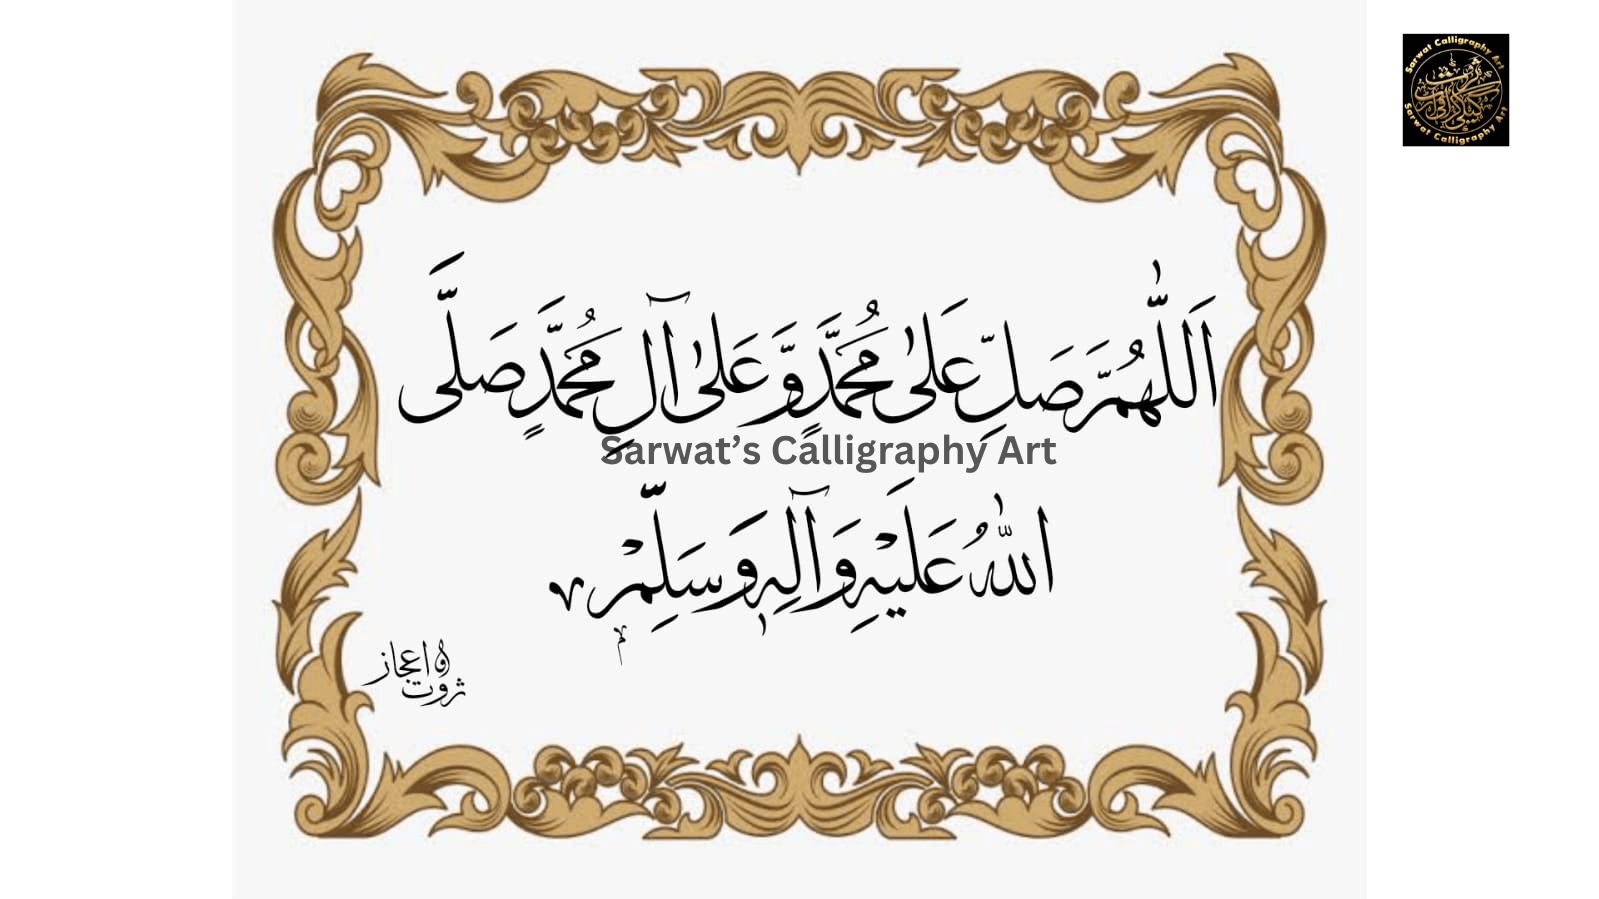 اَللّٰهُمَّ صَلِّ عَلىٰ مُحَمَّدٍ وَّعَلىٰ آلِ مُحَمَّدٍ صَلَّى
اللّٰهُ عَلَيْهِ وَآلِهٖ وَسَلِّمْ
Sarwat's Calligraphy Art
ثروت اعجاز
Sarwat Calligraphy Art
Sarwat Calligraphy Art